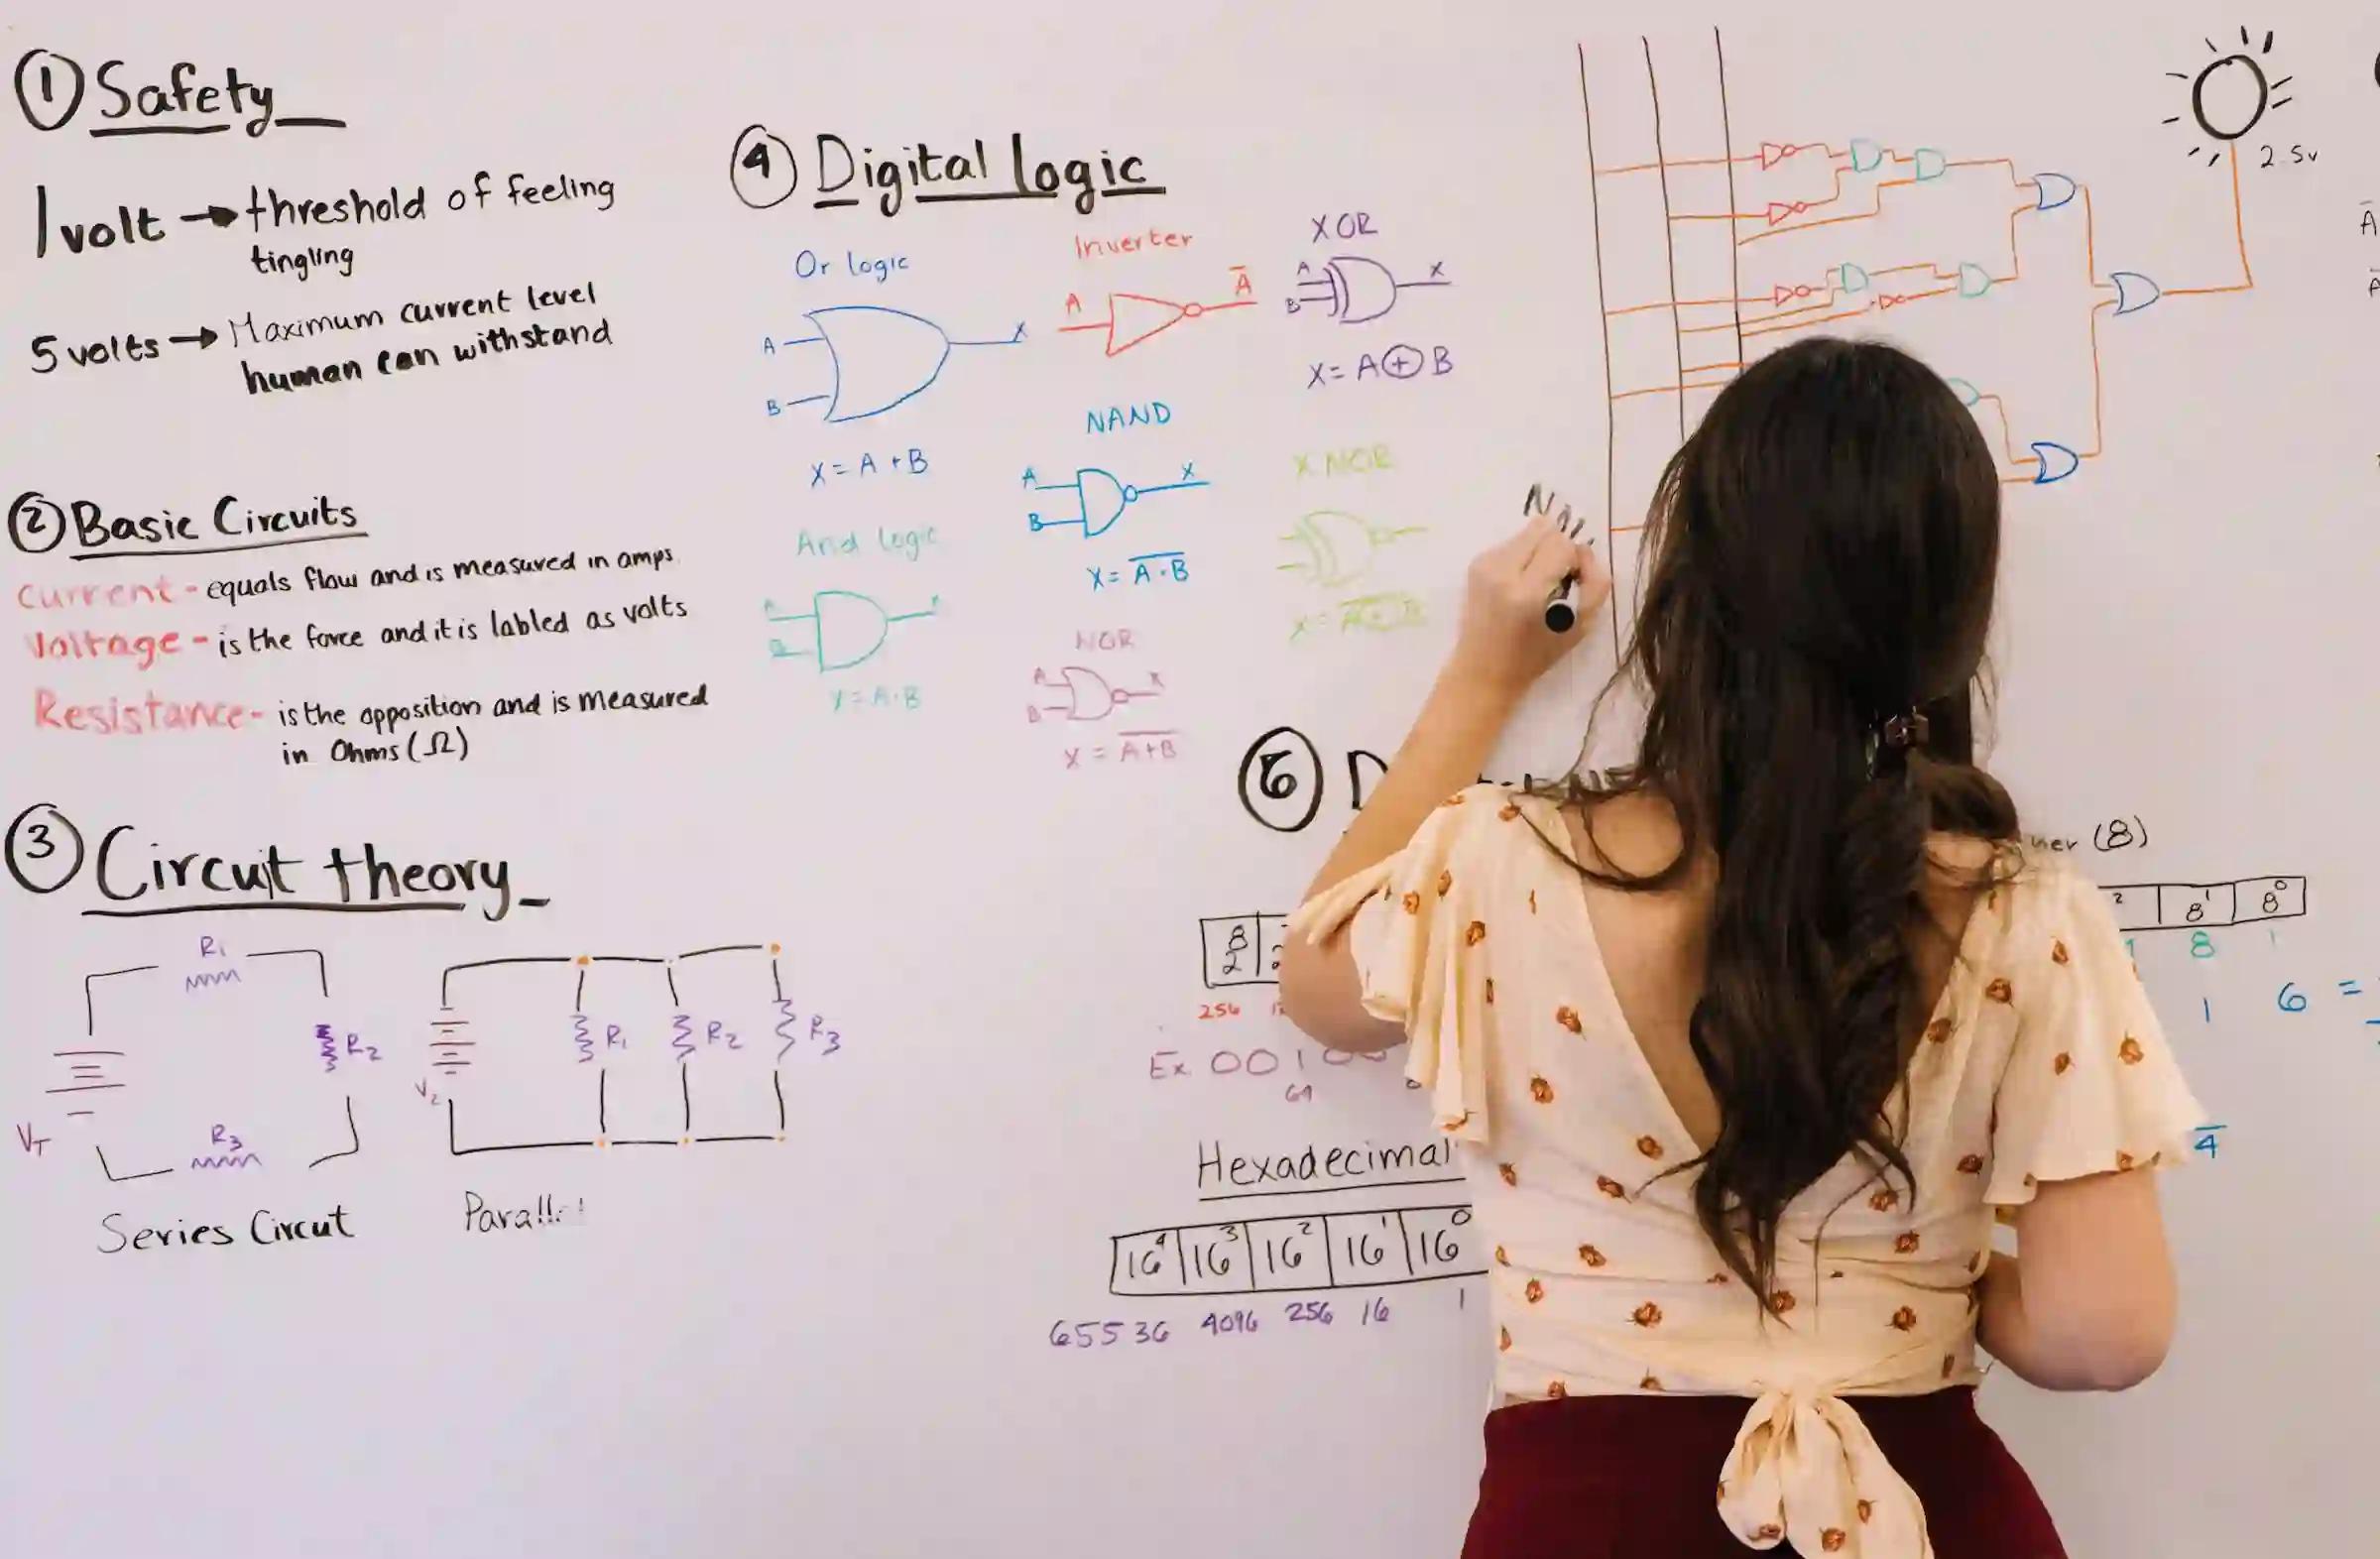 ① Safety
1 volt → threshold of feeling
tingling
5 volts → Maximum current level
human can withstand
② Basic Circuits
Current - equals flow and is measured in amps
Voltage - is the force and it is labled as volts
Resistance - is the opposition and is measured
in Ohms (Ω)
③ Circuit theory
R1
R2
R3
VT
Series Circut
R1
R2
R3
V2
④ Digital logic
Or logic
A
B
X
X = A + B
And logic
Y = A·B
Inverter
A
A̅
NAND
A
B
X
X = A̅·̅B̅
NOR
A
B
X
X = A̅+̅B̅
XOR
A
B
X
X = A ⊕ B
X NOR
2.5v
⑤
(8)
8¹ 8⁰
8 1
1 6 =
4
256
Ex 001
64
Hexadecimal
16⁴ 16³ 16² 16¹ 16⁰
65536 4096 256 16 1